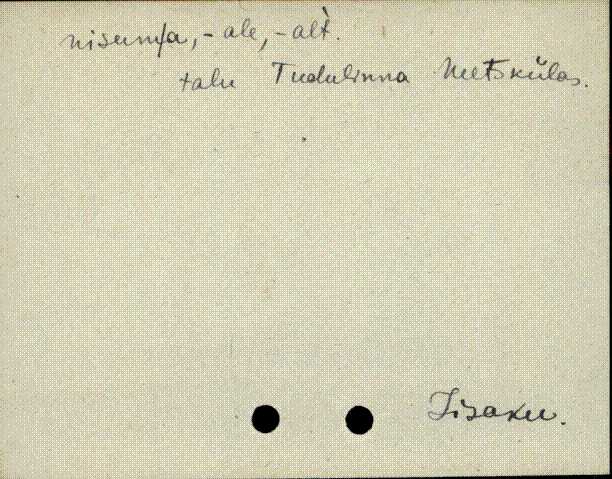 nisumäa, -ale, -alt̀.
talu Tudulinna Metskülas.
Iisaku.